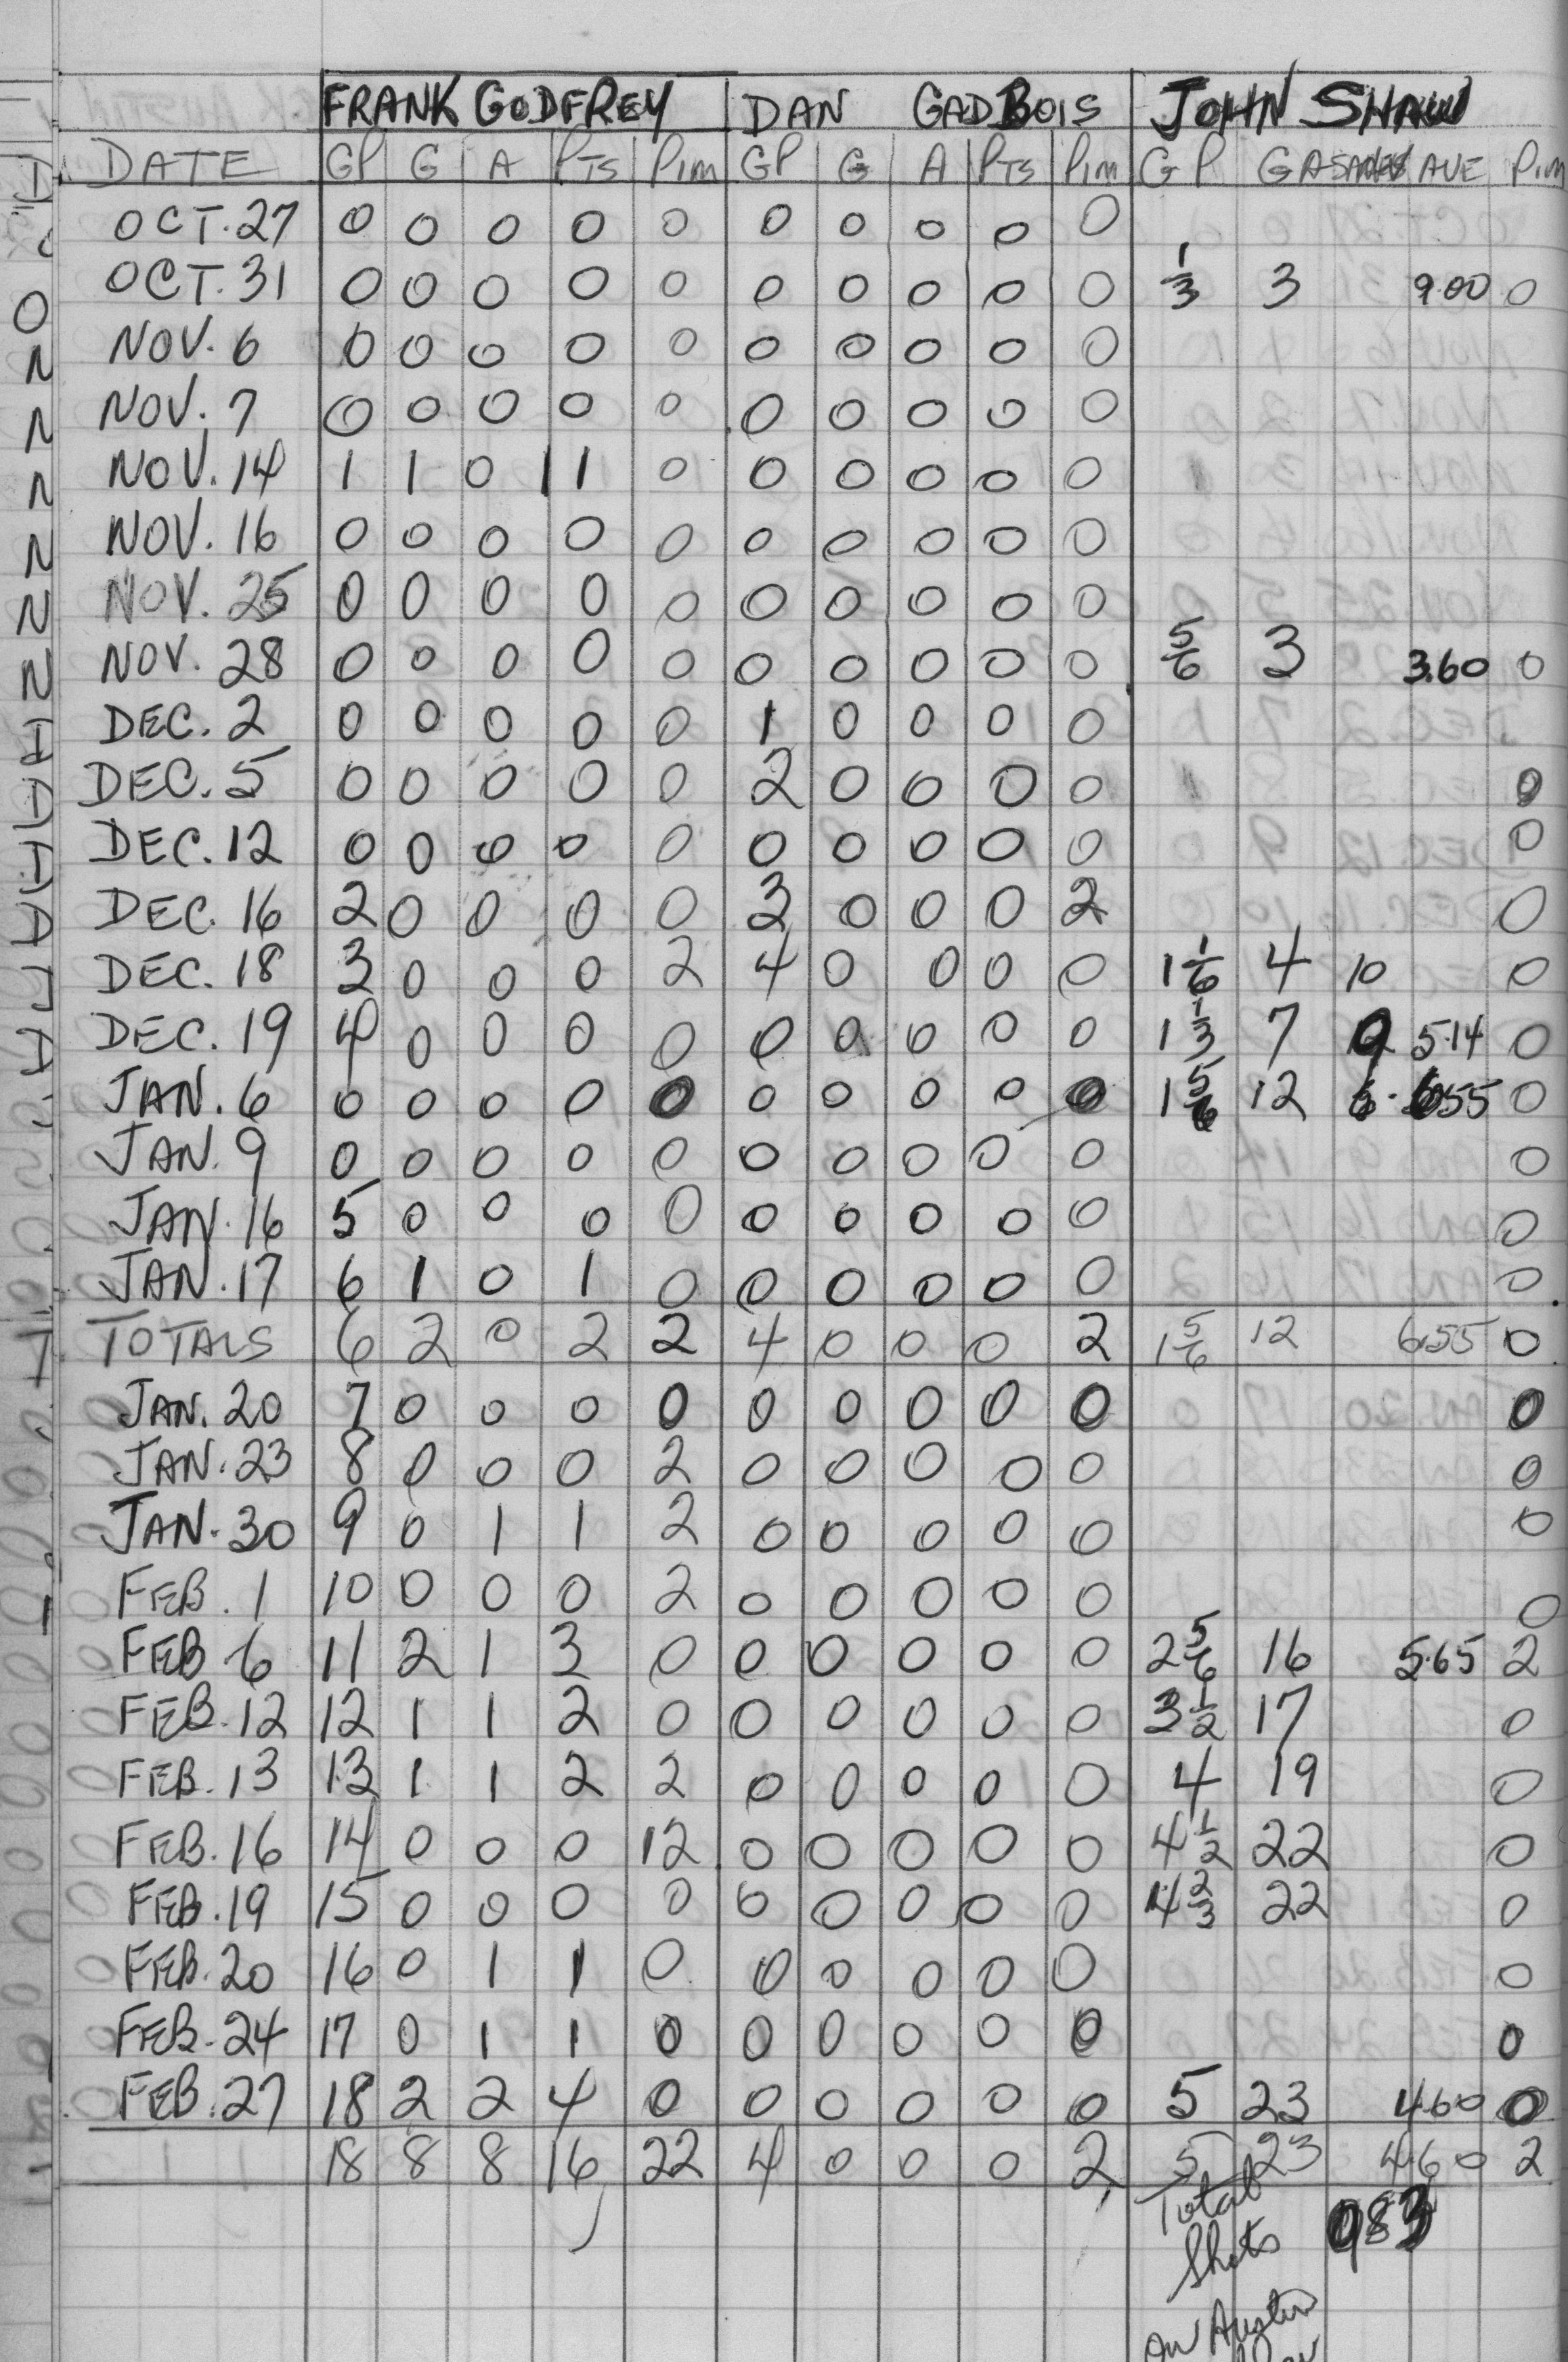 FRANK GODFREY DAN GADBOIS JOHN SHAW
DATE GP G A PTS Pim GP G A PTS Pim GP GA AVE Pim
OCT. 27 0 0 0 0 0 0 0 0 0 0
OCT. 31 0 0 0 0 0 0 0 0 0 0 1/3 3 9.00 0
NOV. 6 0 0 0 0 0 0 0 0 0 0
NOV. 7 0 0 0 0 0 0 0 0 0 0
NOV. 14 1 1 0 1 0 0 0 0 0 0
NOV. 16 0 0 0 0 0 0 0 0 0 0
NOV. 25 0 0 0 0 0 0 0 0 0 0
NOV. 28 0 0 0 0 0 0 0 0 0 0 5/6 3 3.60 0
DEC. 2 0 0 0 0 0 1 0 0 0 0
DEC. 5 0 0 0 0 0 2 0 0 0 0 0
DEC. 12 0 0 0 0 0 0 0 0 0 0 0
DEC. 16 2 0 0 0 0 3 0 0 0 2 0
DEC. 18 3 0 0 0 2 4 0 0 0 0 1 1/6 4 10 0
DEC. 19 4 0 0 0 0 0 0 0 0 0 1 1/3 7 9 5.14 0
JAN. 6 0 0 0 0 0 0 0 0 0 0 1 5/6 12 6.55 0
JAN. 9 0 0 0 0 0 0 0 0 0 0 0
JAN. 16 5 0 0 0 0 0 0 0 0 0 0
JAN. 17 6 1 0 1 0 0 0 0 0 0 0
TOTALS 6 2 0 2 2 4 0 0 0 2 1 5/6 12 6.55 0
JAN. 20 7 0 0 0 0 0 0 0 0 0 0
JAN. 23 8 0 0 0 2 0 0 0 0 0 0
JAN. 30 9 0 1 1 2 0 0 0 0 0 0
FEB. 1 10 0 0 0 2 0 0 0 0 0 0
FEB 6 11 2 1 3 0 0 0 0 0 0 2 5/6 16 5.65 2
FEB. 12 12 1 1 2 0 0 0 0 0 0 3 1/2 17 0
FEB. 13 13 1 1 2 2 0 0 0 0 0 4 19 0
FEB. 16 14 0 0 0 12 0 0 0 0 0 4 1/2 22 0
FEB. 19 15 0 0 0 0 0 0 0 0 0 4 2/3 22 0
FEB. 20 16 0 1 1 0 0 0 0 0 0 0
FEB. 24 17 0 1 1 0 0 0 0 0 0 0
FEB. 27 18 2 2 4 0 0 0 0 0 0 5 23 4.60 0
18 8 8 16 22 4 0 0 0 2 5 23 4.60 2
Total 983
Shots
on Austin